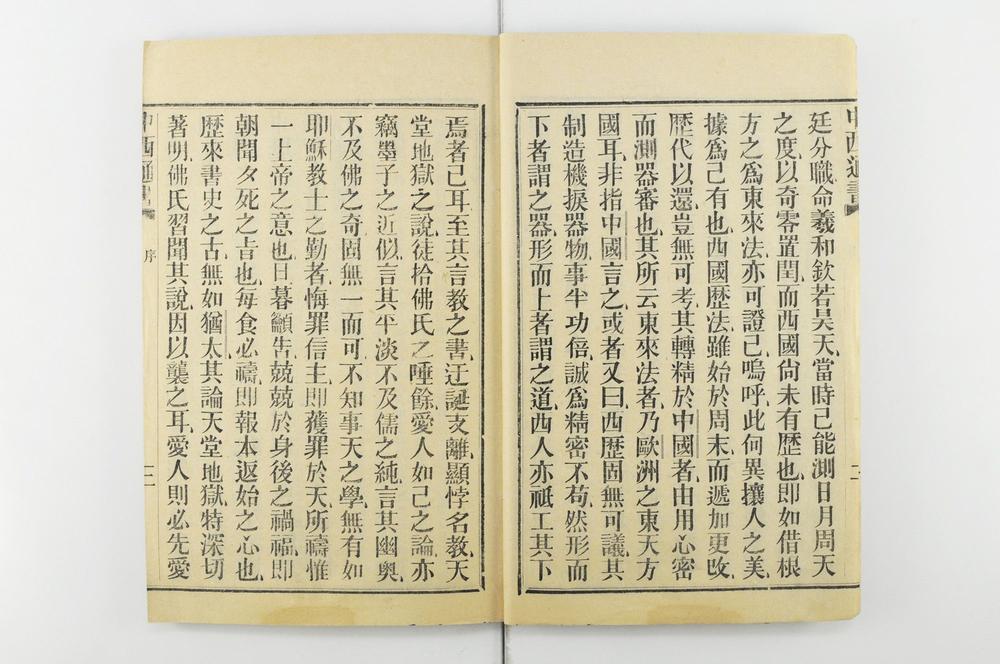 中西通書
二
廷分職命羲和欽若昊天、當時已能測日月周天
之度、以奇零置閏、而西國尙未有歷也、卽如借根
方之爲東來法、亦可證已、嗚呼、此何異攘人之美、
據爲己有也、西國歷法、雖始於周末、而遞加更改、
歷代以還、豈無可考、其轉精於中國者、由用心密
而測器審也、其所云東來法者、乃歐洲之東天方
國耳、非指中國言之、或者又曰、西歷固無可議、其
制造機捩器物、事半功倍、誠爲精密不苟、然形而
下者謂之器、形而上者謂之道、西人亦祗工其下
焉者已耳、至其言教之書、迂誕支離、顯悖名教、天
堂地獄之說、徒拾佛氏之唾餘、愛人如己之論、亦
竊墨子之近似、言其平淡、不及儒之純、言其幽奧、
不及佛之奇、固無一而可、不知事天之學、無有如
耶穌教士之勤者、悔罪信主、卽獲罪於天所禱惟
一上帝之意也、日暮籲告、兢兢於身後之禍福、卽
朝聞夕死之旨也、每食必禱、卽報本返始之心也、
歷來書史之古、無如猶太、其論天堂地獄、特深切
著明、佛氏習聞其說、因以襲之耳、愛人則必先愛
中西通書
序
二